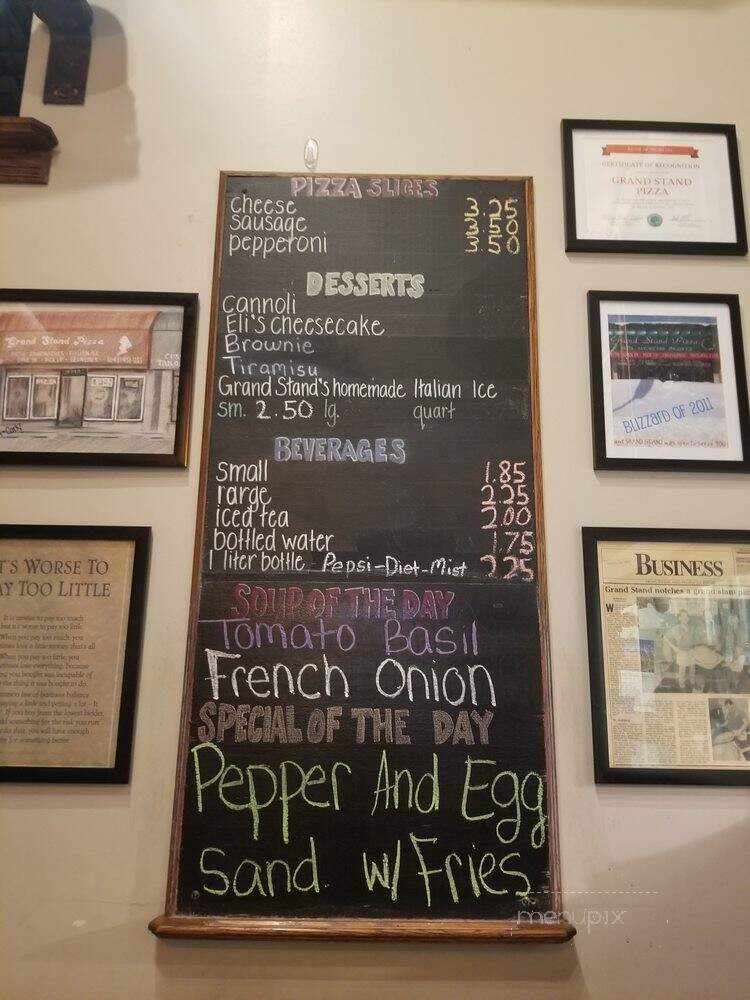 PIZZA SLICES
cheese 3.25
sausage 3.50
pepperoni 3.50
DESSERTS
cannoli
Eli's cheesecake
Brownie
Tiramisu
Grand Stand's homemade Italian Ice
sm. 2.50 lg. quart
BEVERAGES
small 1.85
rarge 2.25
iced tea 2.00
bottled water 1.75
1 liter bottle Pepsi-Diet-Mist 2.25
SOUP OF THE DAY
Tomato Basil
French Onion
SPECIAL OF THE DAY
Pepper And Egg
Sand. w/ Fries
CERTIFICATE OF RECOGNITION
GRAND STAND
PIZZA
Grand Stand Pizza
OPEN
Grand Stand Pizza
BLIZZARD OF 2011
T'S WORSE TO
AY TOO LITTLE
It is unwise to pay too much
but it's worse to pay too little.
When you pay too much, you
BUSINESS
Grand Stand notches a grand slam
menupix